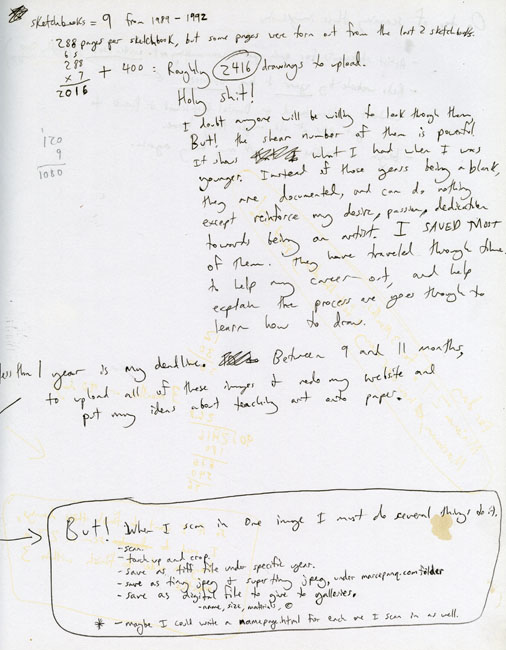 sketchbooks = 9 from 1989 - 1992
288 pages per sketchbook, but some pages were torn out from the last 2 sketchbooks.
6 5
288
x 7
2016
+ 400 = Roughly 2416 drawings to upload.
Holy shit!
120
9
1080
I doubt anyone will be willing to look though them,
But! the shear number of them is powerful
It shows what I had when I was
younger. Instead of those years being a blank,
they are documented, and can do nothing
except reinforce my desire, passion, dedication
towards being an artist. I SAVED MOST
of them. They have traveled through time
to help my career out, and help
explain the process one goes through to
learn how to draw.
less than 1 year is my deadline. Between 9 and 11 months,
to upload all of these images & redo my website and
put my ideas about teaching art onto paper.
But! When I scan in one image I must do several things to it.
- scan
- touch up and crop.
- save as tiff file under specific year.
- save as tiny jpeg & super tiny jpeg, under folder
- save as digital file to give to galleries.
- name, size, materials, ©
* - maybe I could write a namepage.html for each one I scan in as well.